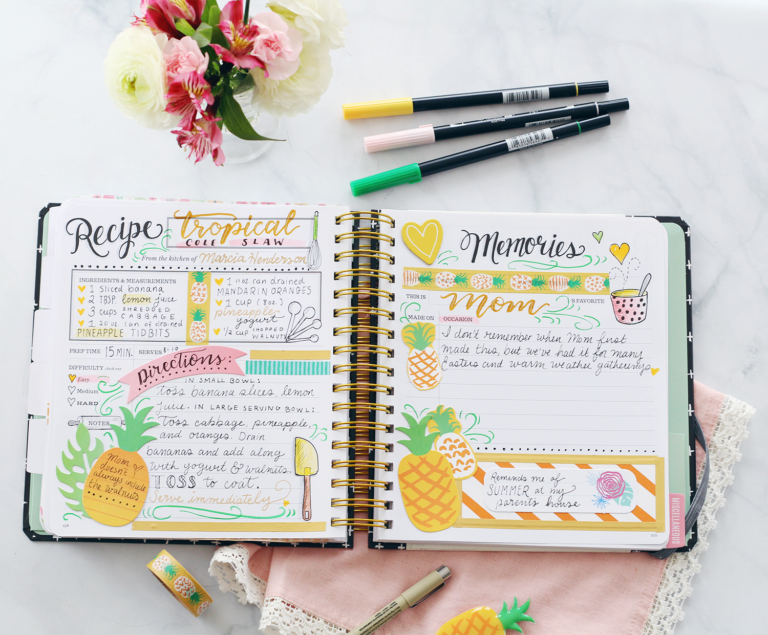 Recipe tropical
COLE SLAW
From the kitchen of Marcia Henderson
INGREDIENTS & MEASUREMENTS
1 sliced banana
2 TBSP lemon juice
3 cups SHREDDED CABBAGE
1 can of drained
PINEAPPLE TIDBITS
1 11oz can drained
MANDARIN ORANGES
1 cup (8oz)
pineapple
yogurt
1/2 cup CHOPPED
WALNUTS
PREP TIME 15 MIN. SERVES
DIFFICULTY
Easy
Medium
HARD
NOTES
Directions:
IN SMALL BOWL:
toss banana slices, lemon
juice. IN LARGE SERVING BOWL:
Toss cabbage, pineapple,
and oranges. Drain
bananas and add along
with yogurt & walnuts.
TOSS to coat.
Serve immediately
Mom
doesn't
always include
the walnuts
Memories
THIS IS Mom 'S FAVORITE
MADE ON OCCASION
I don't remember when Mom first
made this, but we've had it for many
Easters and warm weather gatherings
Reminds me of
SUMMER at my
parents house
MISCELLANEOUS